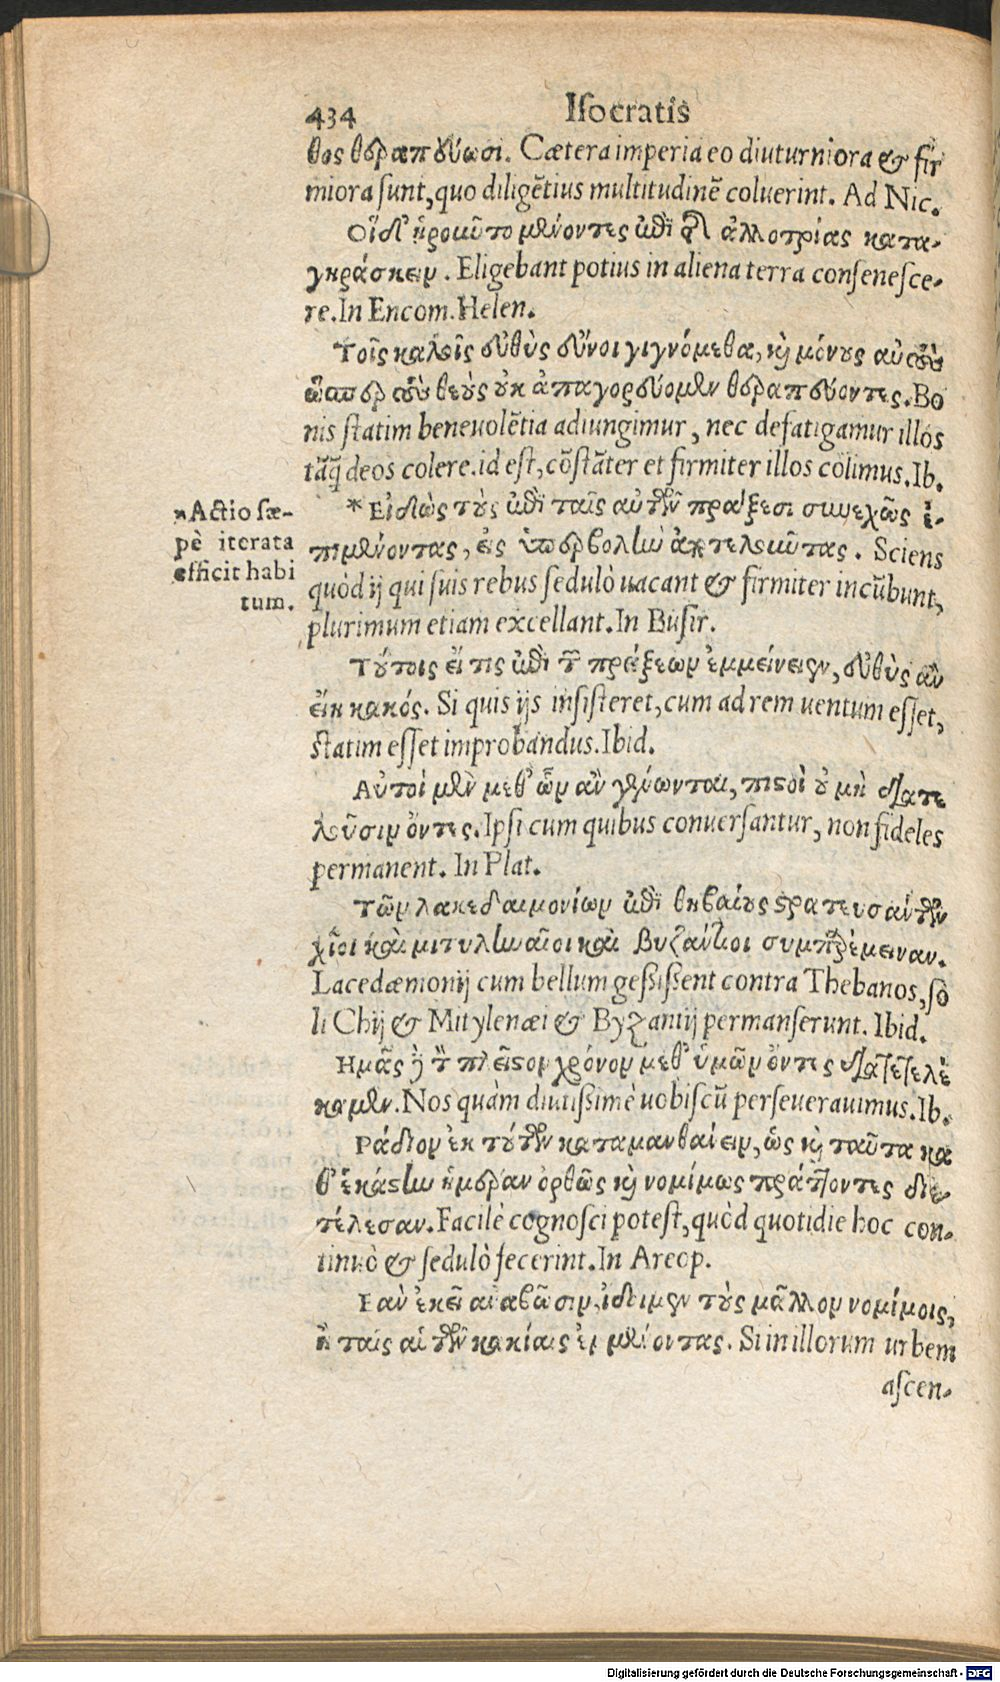 434 Iſocratis
θος θεραπεύωσι. Cætera imperia eo diuturniora & fir
miora ſunt, quo diligẽtius multitudinẽ coluerint. Ad Nic.
Οἵδ' ᾑροῦντο μένοντες ἐπὶ τῆς ἀλλοτρίας κατα-
γηράσκειν. Eligebant potius in aliena terra conſeneſce-
re. In Encom. Helen.
Τοῖς καλοῖς εὐθὺς εὖνοι γιγνόμεθα, κὶ μόνους αὐτοὺς
ὥσπερ τοὺς θεοὺς οὐκ ἀπαγορεύομεν θεραπεύοντες. Bo
nis ſtatim beneuolẽtia adiungimur, nec defatigamur illos
tãq̃ deos colere. id eſt, cõſtãter et firmiter illos colimus. Ib.
* Εἰδὼς τοὺς ἐπὶ ταῖς αὐτῶν πράξεσι συνεχῶς ἐ-
πιμένοντας, εἰς ὑπερβολὴν ἀποτελοῦντας. Sciens
quòd ij qui ſuis rebus ſedulò uacant & firmiter incũbunt,
plurimum etiam excellant. In Buſir.
*Actio ſæ-
pè iterata
efficit habi
tum.
Τούτοις εἴ τις ἐπὶ τῶν πράξεων ἐμμείνειεν, εὐθὺς ἂν
εἴη κακός. Si quis ijs inſiſteret, cum ad rem uentum eſſet,
ſtatim eſſet improbandus. Ibid.
Αὐτοὶ μὲν μεθ' ὧν ἂν γένωνται, πιστοὶ οὐ μὴ διατε
λοῦσιν ὄντες. Ipſi cum quibus conuerſantur, non fideles
permanent. In Plat.
Τῶν λακεδαιμονίων ἐπὶ θηβαίους στρατευσάντων
χῖοι καὶ μιτυληναῖοι καὶ Βυζάντιοι συμπαρέμειναν.
Lacedæmonij cum bellum geſsiſſent contra Thebanos, ſo
li Chij & Mitylenæi & Byzantij permanſerunt. Ibid.
Ημᾶς ἢ τὸν πλεῖστον χρόνον μεθ' ὑμῶν ὄντες διατετελέ
καμεν. Nos quàm diutiſsimè uobiſcũ perſeuerauimus. Ib.
Ράδιον ἐκ τούτων καταμανθάνειν, ὡς κὶ ταῦτα κα
θ' ἑκάστην ἡμέραν ὀρθῶς κὶ νομίμως πράττοντες διε-
τέλεσαν. Facilè cognoſci poteſt, quòd quotidie hoc con-
tinuò & ſedulò fecerint. In Areop.
Εαν ἐκεῖ ἀναβῶσιν, ἴδοιμεν τοὺς μᾶλλον νομίμοις,
ἢ ταῖς αὑτῶν κακίαις ἐμμένοντας. Si in illorum urbem
aſcen-
Digitalisierung gefördert durch die Deutsche Forschungsgemeinschaft - DFG